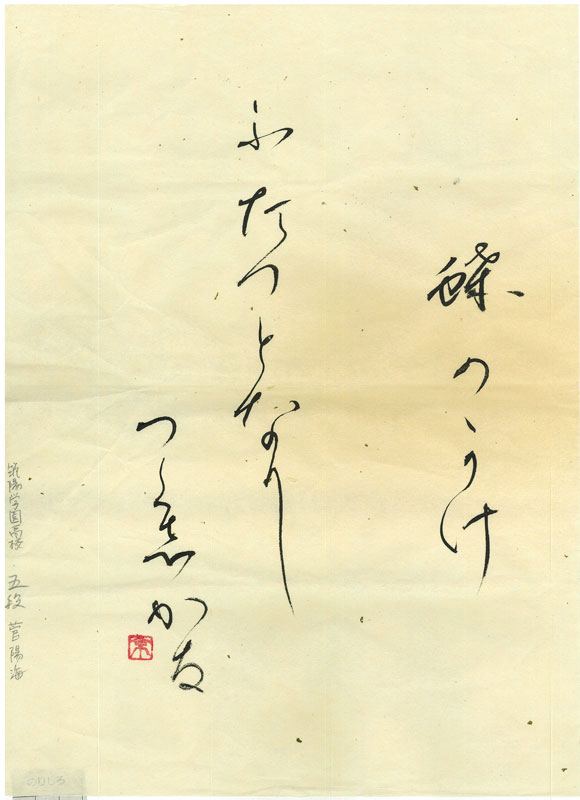 蝶のかけ
ふたつとなりし
つくゑかな
筑陽学園高校 五段 菅陽海
のりしろ